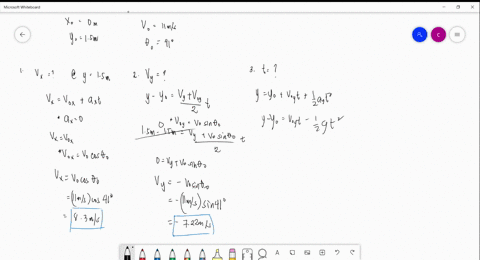 Microsoft Whiteboard
x₀ = 0m
y₀ = 1.5m
V₀ = 11m/s
θ₀ = 41°
1. Vₓ = ? @ y = 1.5m
Vₓ = V₀ₓ + aₓt
* aₓ = 0
Vₓ = V₀ₓ
*V₀ₓ = V₀ cosθ₀
Vₓ = V₀ cosθ₀
= (11m/s) cos 41°
= 8.3 m/s
2. Vy = ?
y - y₀ = (Vy + V₀y)/2 t
* V₀y = V₀ sinθ₀
0
1.5m - 1.5m = (Vy + V₀ sinθ₀)/2 t
0 = Vy + V₀ sinθ₀
Vy = - V₀ sinθ₀
= - (11m/s) sin 41°
= - 7.22m/s
3. t = ?
y = y₀ + V₀yt + ½ayt²
y - y₀ = V₀yt - ½gt²